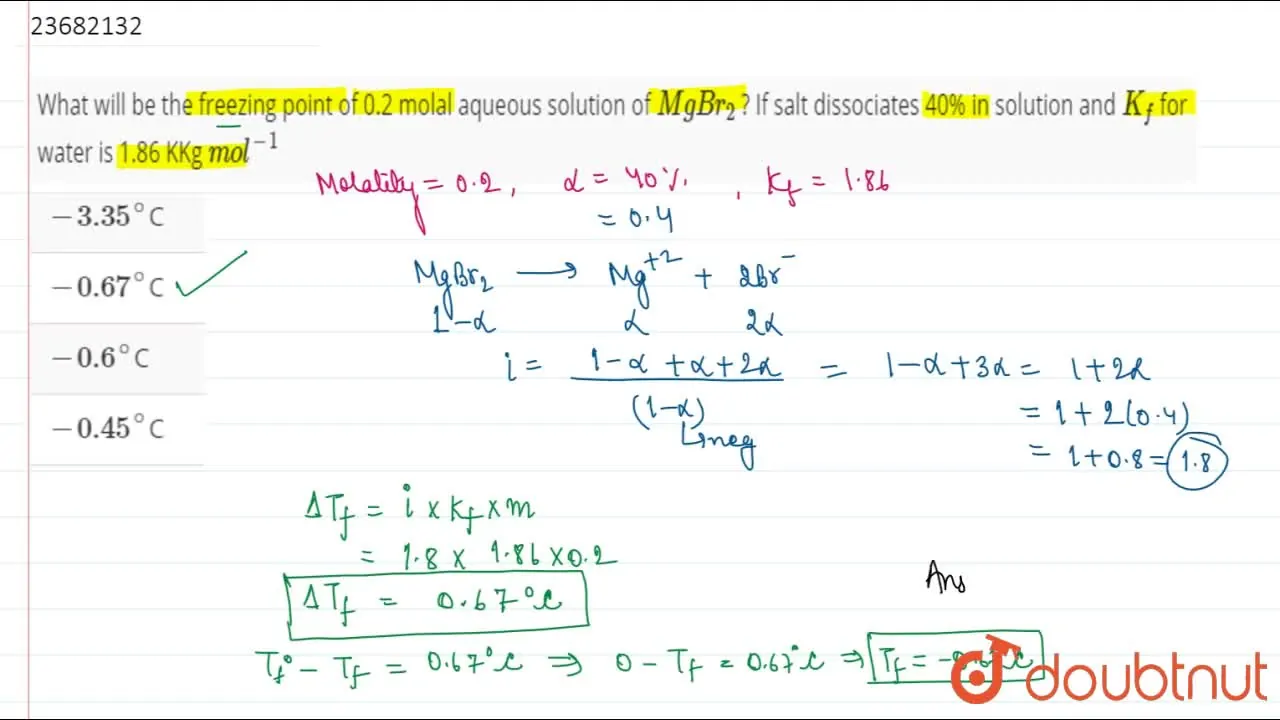 23682132
What will be the freezing point of 0.2 molal aqueous solution of MgBr₂? If salt dissociates 40% in solution and K_f for
water is 1.86 KKg mol⁻¹
Molality = 0.2, α = 40%, K_f = 1.86
= 0.4
−3.35°C
−0.67°C ✓
−0.6°C
−0.45°C
MgBr₂ → Mg⁺² + 2Br⁻
1−α α 2α
i = (1−α+α+2α)/(1−α) = 1−α+3α = 1+2α
↳neg = 1+2(0.4)
= 1+0.8 = 1.8
ΔT_f = i × K_f × m
= 1.8 × 1.86 × 0.2
ΔT_f = 0.67°C
Ans
T_f° − T_f = 0.67°C ⇒ 0 − T_f = 0.67°C ⇒ T_f = −0.6
doubtnut